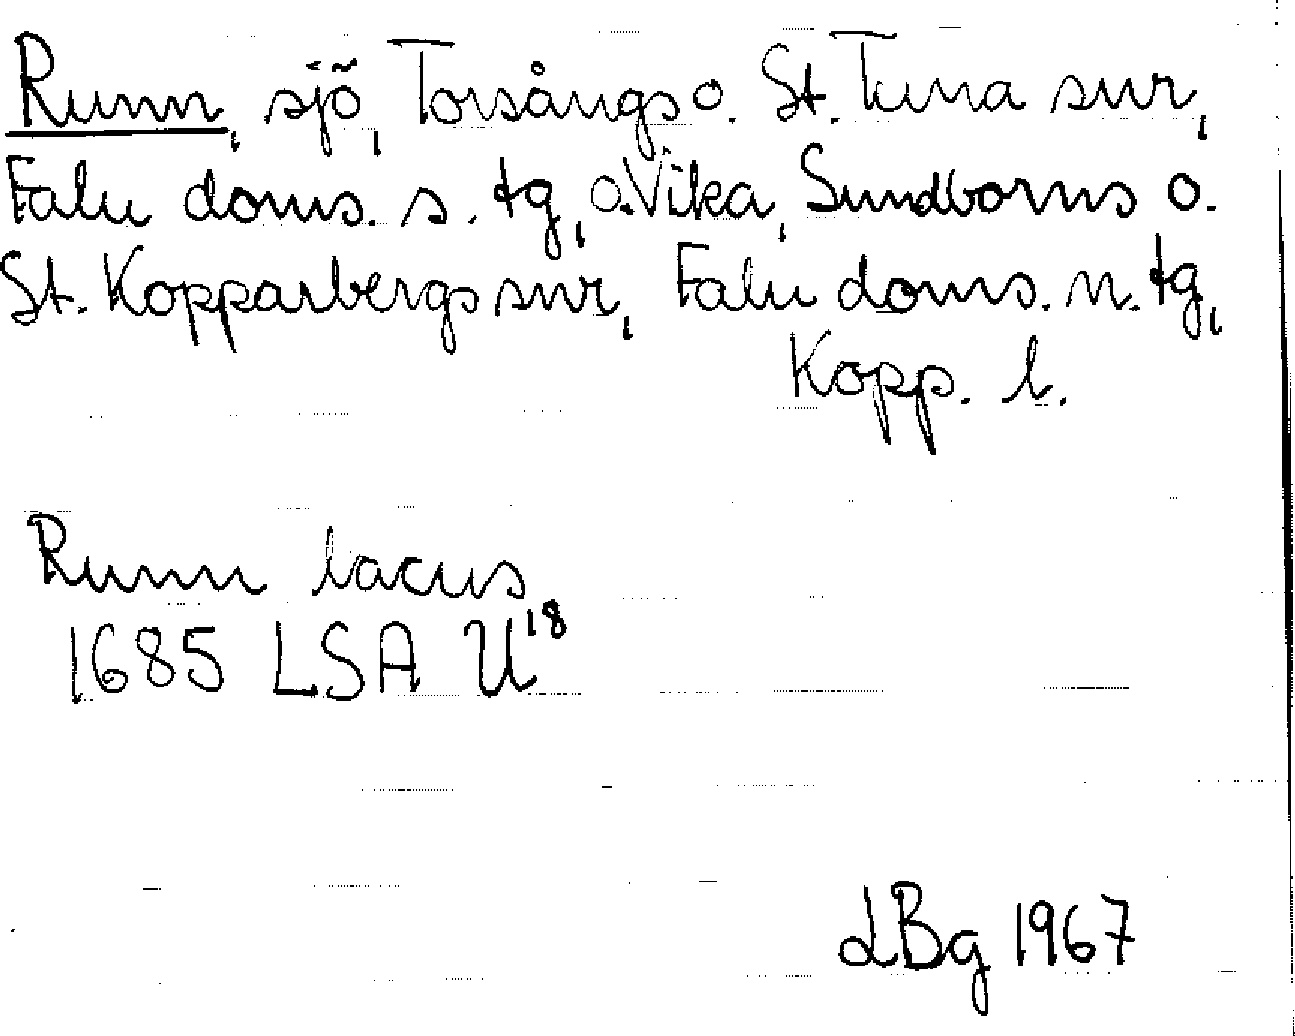 Runn, sjö, Torsångs o. St. Tuna snr,
Falu doms. s. tg, o. Vika, Sundborns o.
St. Kopparbergs snr, Falu doms. n. tg,
Kopp. l.
Runn lacus
1685 LSA U18
LBg 1967